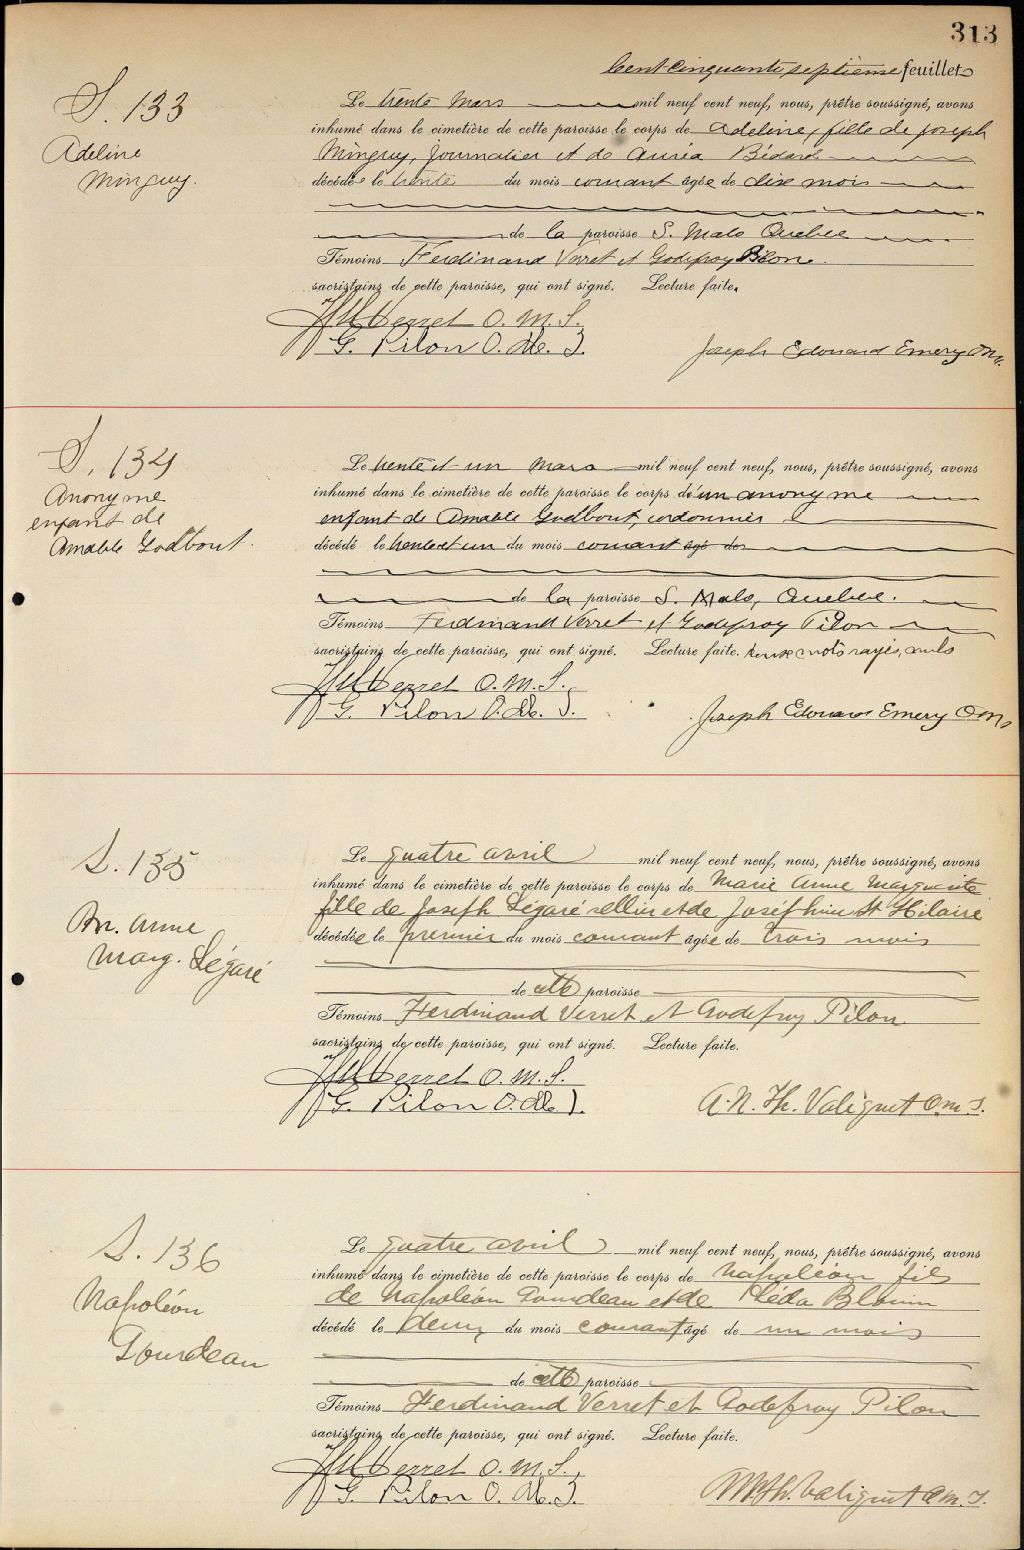 313
Cent cinquante septième feuillet
S. 133
Adeline
Minguy.
Le trente Mars mil neuf cent neuf, nous, prêtre soussigné, avons
inhumé dans le cimetière de cette paroisse le corps de Adeline, fille de Joseph
Minguy, Journalier et de Auréa Bédard
décédée le trente du mois courant âgée de dix mois
de la paroisse S. Malo Québec
Témoins Ferdinand Verret et Godefroy Pilon
sacristains de cette paroisse, qui ont signé. Lecture faite.
Verret O. M. I.
G. Pilon O. M. I.
Joseph Edouard Emery OMI.
S. 134
Anonyme
enfant de
Amable Godbout.
Le trente et un Mars mil neuf cent neuf, nous, prêtre soussigné, avons
inhumé dans le cimetière de cette paroisse le corps d'un anonyme
enfant de Amable Godbout, cordonnier
décédé le trente et un du mois courant âgé de
de la paroisse S. Malo, Québec.
Témoins Ferdinand Verret et Godefroy Pilon
sacristains de cette paroisse, qui ont signé. Lecture faite. deux mots rayés, nuls
Verret O. M. I.
G. Pilon O. M. I.
Joseph Edouard Emery OMI
S. 135
M. Anne
Marg. Légaré
Le quatre avril mil neuf cent neuf, nous, prêtre soussigné, avons
inhumé dans le cimetière de cette paroisse le corps de Marie Anne Marguerite
fille de Joseph Légaré sellier et de Joséphine St Hilaire
décédée le premier du mois courant âgée de trois mois
de cette paroisse
Témoins Ferdinand Verret et Godefroy Pilon
sacristains de cette paroisse, qui ont signé. Lecture faite.
Verret O. M. I.
G. Pilon O. M. I.
A. N. Th. Valiquet O.M.I.
S. 136
Napoléon
Gourdeau
Le quatre avril mil neuf cent neuf, nous, prêtre soussigné, avons
inhumé dans le cimetière de cette paroisse le corps de Napoléon fils
de Napoléon Gourdeau et de Léda Blouin
décédé le deux du mois courant âgé de un mois
de cette paroisse
Témoins Ferdinand Verret et Godefroy Pilon
sacristains de cette paroisse, qui ont signé. Lecture faite.
Verret O. M. I.
G. Pilon O. M. I.
A. N. Th. Valiquet O.M.I.